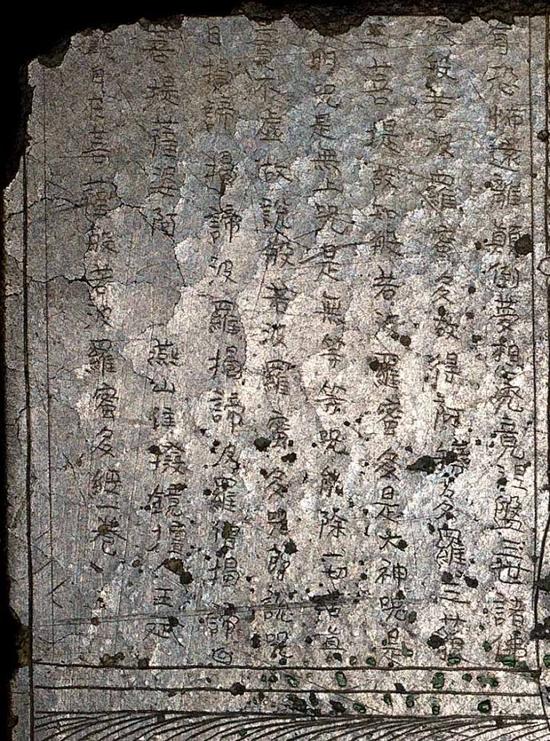 有恐怖遠離顛倒夢想究竟涅盤三世諸佛
依般若波羅蜜多故得阿耨多羅三藐
三菩提故知般若波羅蜜多是大神呪是
明呪是無上呪是無等等呪能除一切苦真
實不虛故說般若波羅蜜多呪即說呪
曰揭諦揭諦波羅揭諦多羅僧揭諦
菩提薩婆 燕山 鏡 王延
自在菩薩般若波羅蜜多經一卷